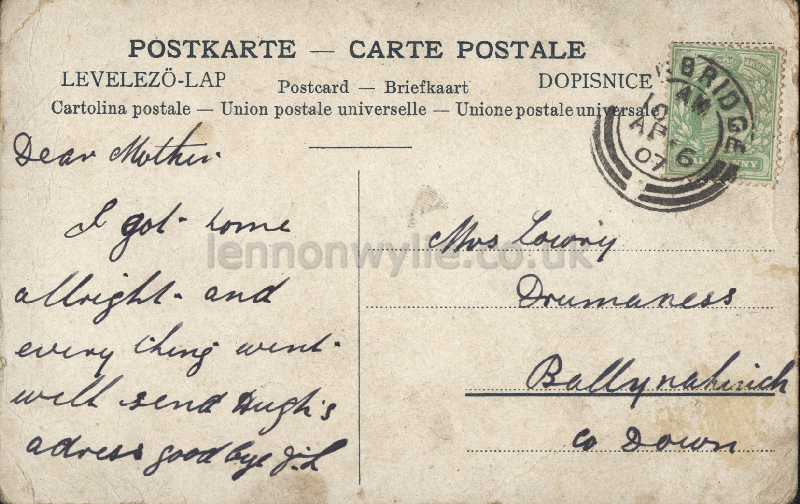 POSTKARTE — CARTE POSTALE
LEVELEZÖ-LAP
Postcard — Briefkaart
DOPISNICE
Cartolina postale — Union postale universelle — Unione postale universale
BRIDGE
10 AM
AP 6
07
Dear Mother.
I got home
allright and
every thing went
well send Hugh's
adress good bye J.L
lennonwylie.co.uk
Mrs Lowry
Drumaness
Ballynahinch
Co Down